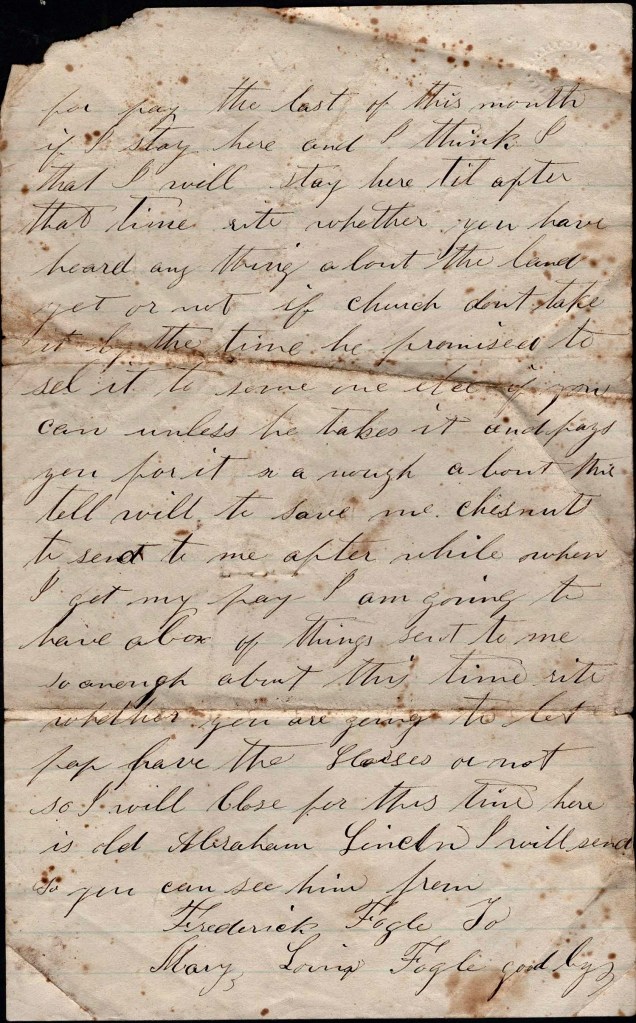 for pay the last of this month
if I stay here and I think I
that I will stay here til after
that time rite whether you have
heard any thing about the land
yet or not if church dont take
it by the time he promised to
sel it to some one else if you
can unless he takes it and pays
you for it so a nough about this
tell will to save me chesnut
to send to me after while when
I get my pay I am going to
have a box of things sent to me
so anough about this time rite
whether you are going to let
pap have the Horses or not
so I will Close for this time here
is old Abraham Lincln I will send
so you can see him from
Frederick Fogle To
Mary Fogle good by